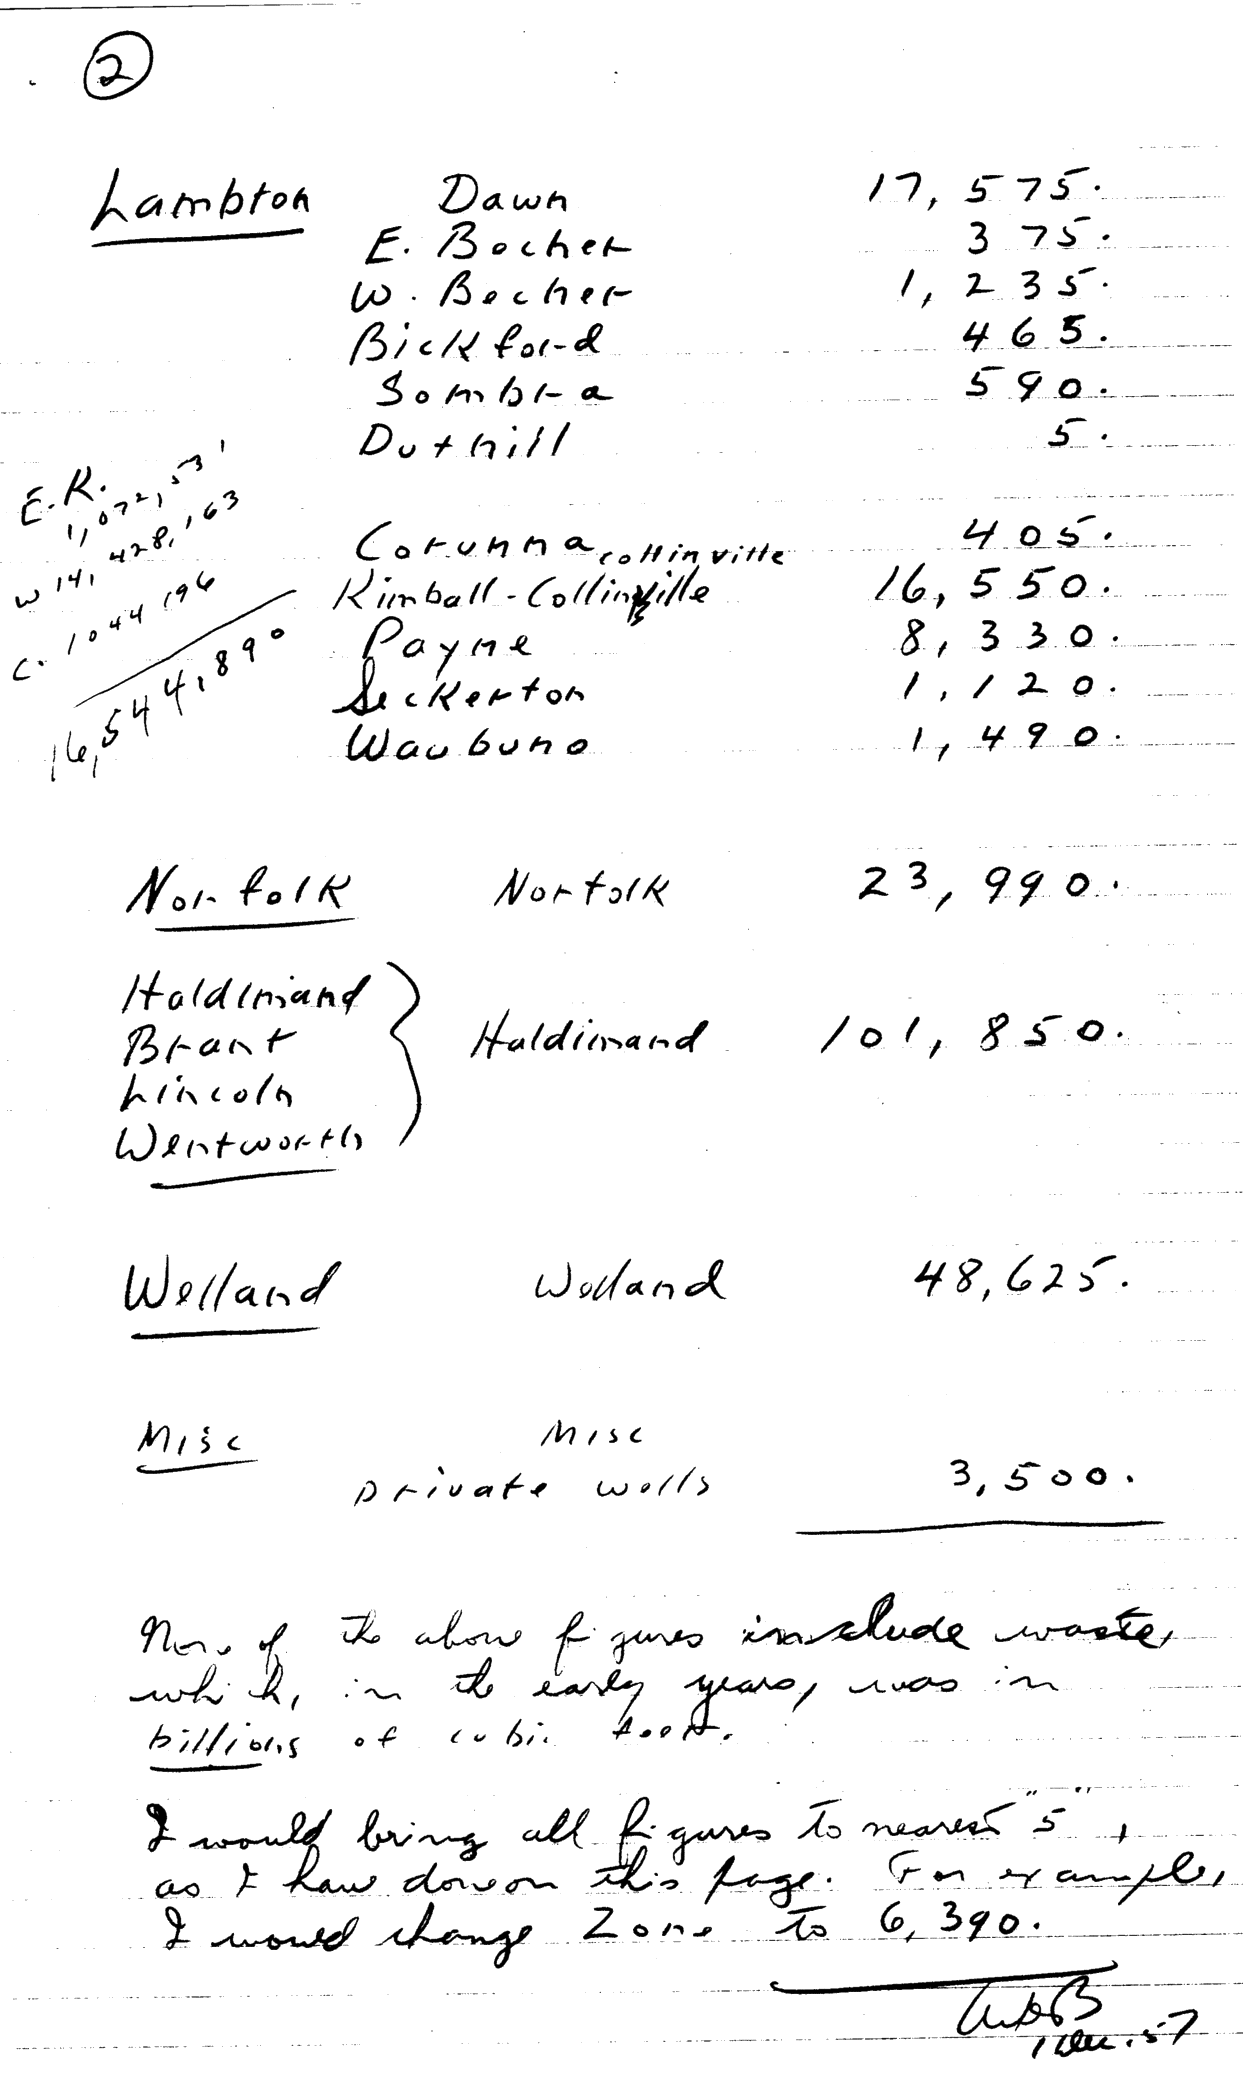 2
Lambton Dawn 17,575.
E. Becher 375.
W. Becher 1,235.
Bickford 465.
Sombra 590.
Duthill 5.
E.K.
1,072,531
W 14,428,163
C. 1044 196
16,544,890
Corunna collinville 405.
Kimball-Collinville 16,550.
Payne 8,330.
Seckerton 1,120.
Waubuno 1,490.
Norfolk Norfolk 23,990.
Haldimand
Brant Haldimand 101,850.
Lincoln
Wentworth
Welland Welland 48,625.
Misc Misc
private wells 3,500.
None of the above figures include waste,
which, in the early years, was in
billions of cubic feet.
I would bring all figures to nearest "5",
as I have done on this page. For example,
I would change Zone to 6,390.
1 Dec. 57